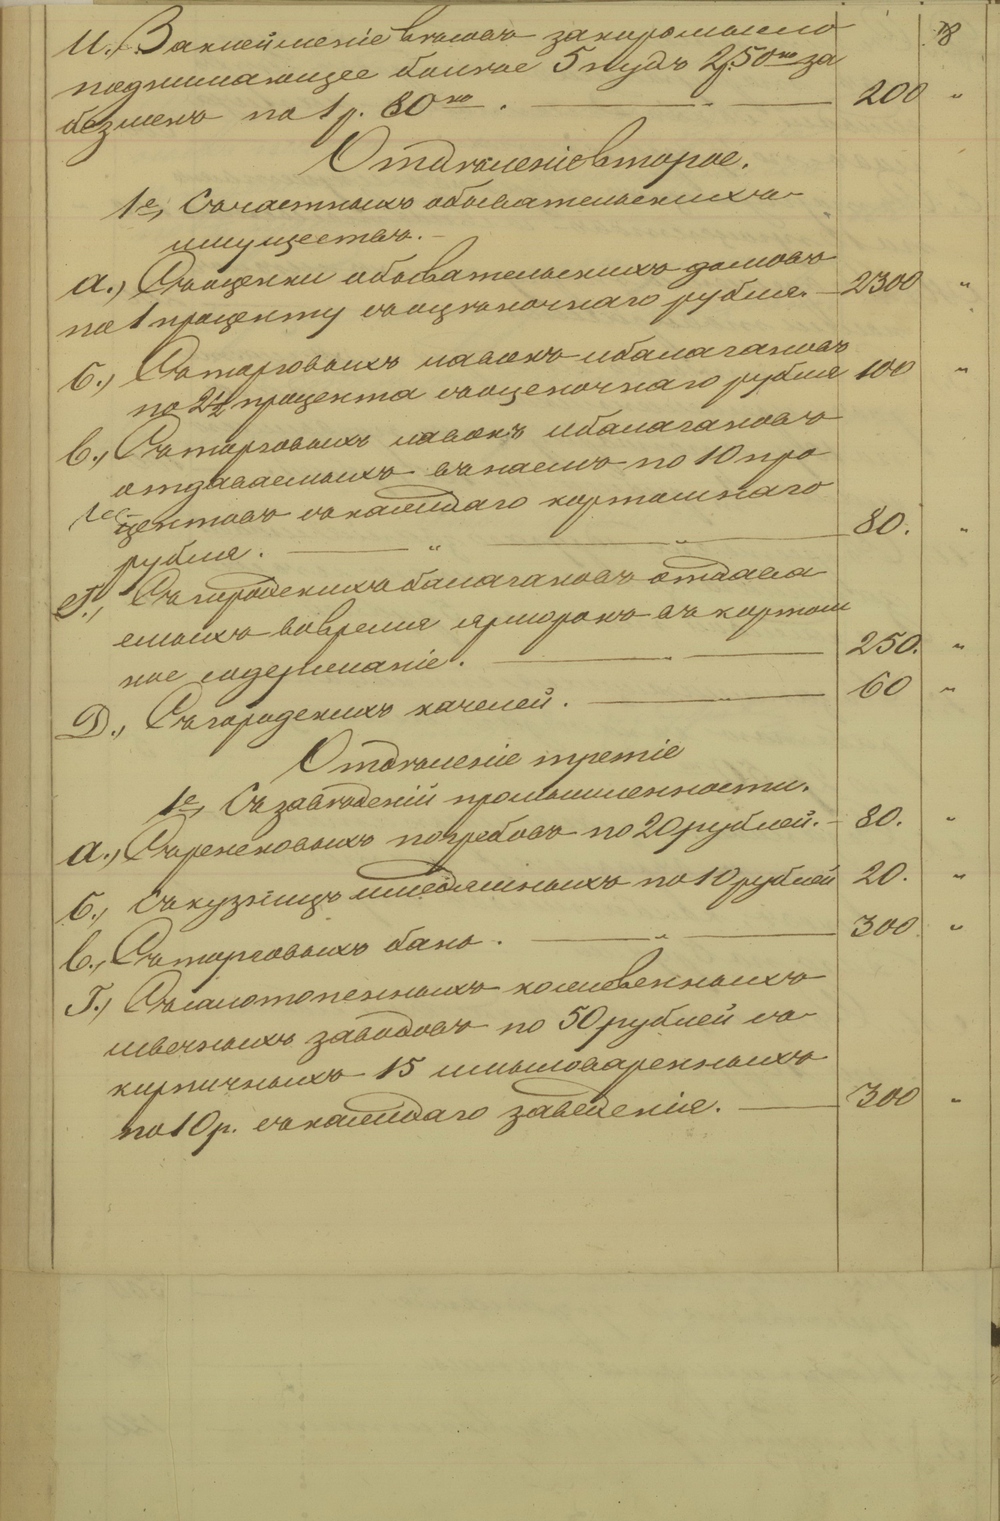 И., За клейменіе вѣсовъ за коромысло
78
поднимающее болѣе 5 пудъ 2 р. 50 ко за
безменъ по 1 р. 80 ко. — " — 200 "
Отдѣленіе второе.
1е, Съ частныхъ обывательскихъ
имуществъ. -
а., Съ оценки обывательскихъ домовъ
по 1 проценту съ оцѣночнаго рубля. — 2300 "
б., Съ торговыхъ лавокъ и балагановъ
по 2 1/2 процента съ оценочнаго рубля 100 "
в., Съ торговыхъ лавокъ и балагановъ
отдаваемыхъ въ наемъ по 10 про
центовъ съ каждаго кортомнаго
рубля. — " — " — 80. "
Г., Съ городскихъ балагановъ отдава
емыхъ во время ярморокъ въ кортом
ное содержаніе. — " — 250. "
Д., Съ городскихъ качелей. — " — 60 "
Отдѣленіе третіе
1е, Съ заведеній промышленности.
а., Съ ренсковыхъ погребовъ по 20 рублей. — 80. "
б., Съ кузницъ по 10 рублей 20. "
в., Съ торговыхъ бань. — " — 300 "
Г., Съ салотопенныхъ кожевенныхъ
свечныхъ заводовъ по 50 рублей съ
кирпичныхъ 15 мыловаренныхъ
по 10 р. съ каждаго заведенія. — 300 "